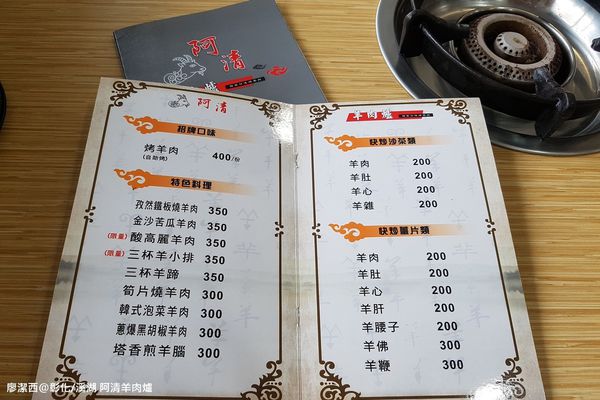 阿清
阿清
招牌口味
烤羊肉 400/份
(自助烤)
特色料理
孜然鐵板燒羊肉 350
金沙苦瓜羊肉 350
(限量) 酸高麗羊肉 350
(限量) 三杯羊小排 350
三杯羊蹄 350
筍片燒羊肉 300
韓式泡菜羊肉 300
蔥爆黑胡椒羊肉 300
塔香煎羊腦 300
羊肉爐
快炒沙茶類
羊肉 200
羊肚 200
羊心 200
羊雜 200
快炒薑片類
羊肉 200
羊肚 200
羊心 200
羊肝 200
羊腰子 200
羊佛 300
羊鞭 300
廖潔西@彰化/溪湖 阿清羊肉爐